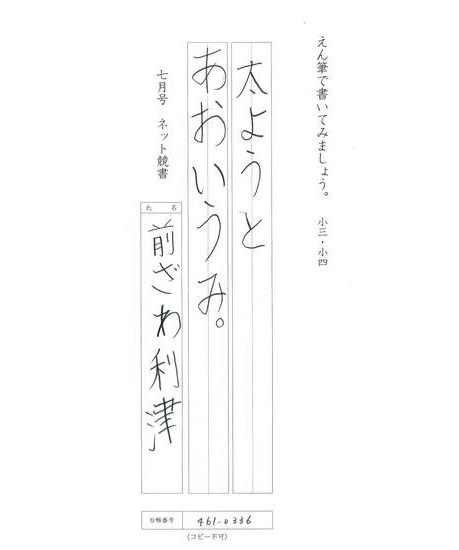 えん筆で書いてみましょう。　小三・小四
太ようと
あおいうみ。
七月号　ネット競書
氏　名
前ざわ利津
台帳番号　461-0336
〈コピー不可〉